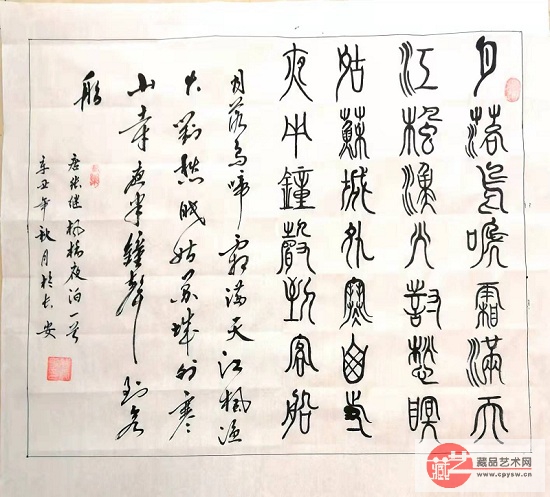 月落烏啼霜滿天
江楓漁火對愁瞑
姑蘇城外寒山寺
夜半鐘聲到客船
月落烏啼霜满天江楓渔
火對愁眠姑苏城外寒
山寺夜半鐘聲到客
船
唐张继枫橋夜泊一首
辛丑年秋月於长安
藏艺
藏品艺术网
www.cpysw.cn